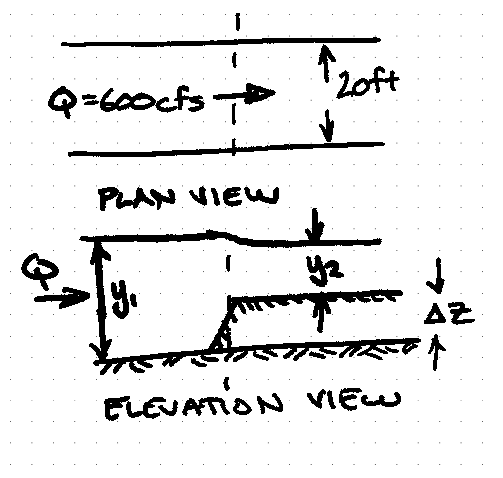 Q=600cfs
20ft
PLAN VIEW
Q
y₁
y₂
ΔZ
ELEVATION VIEW